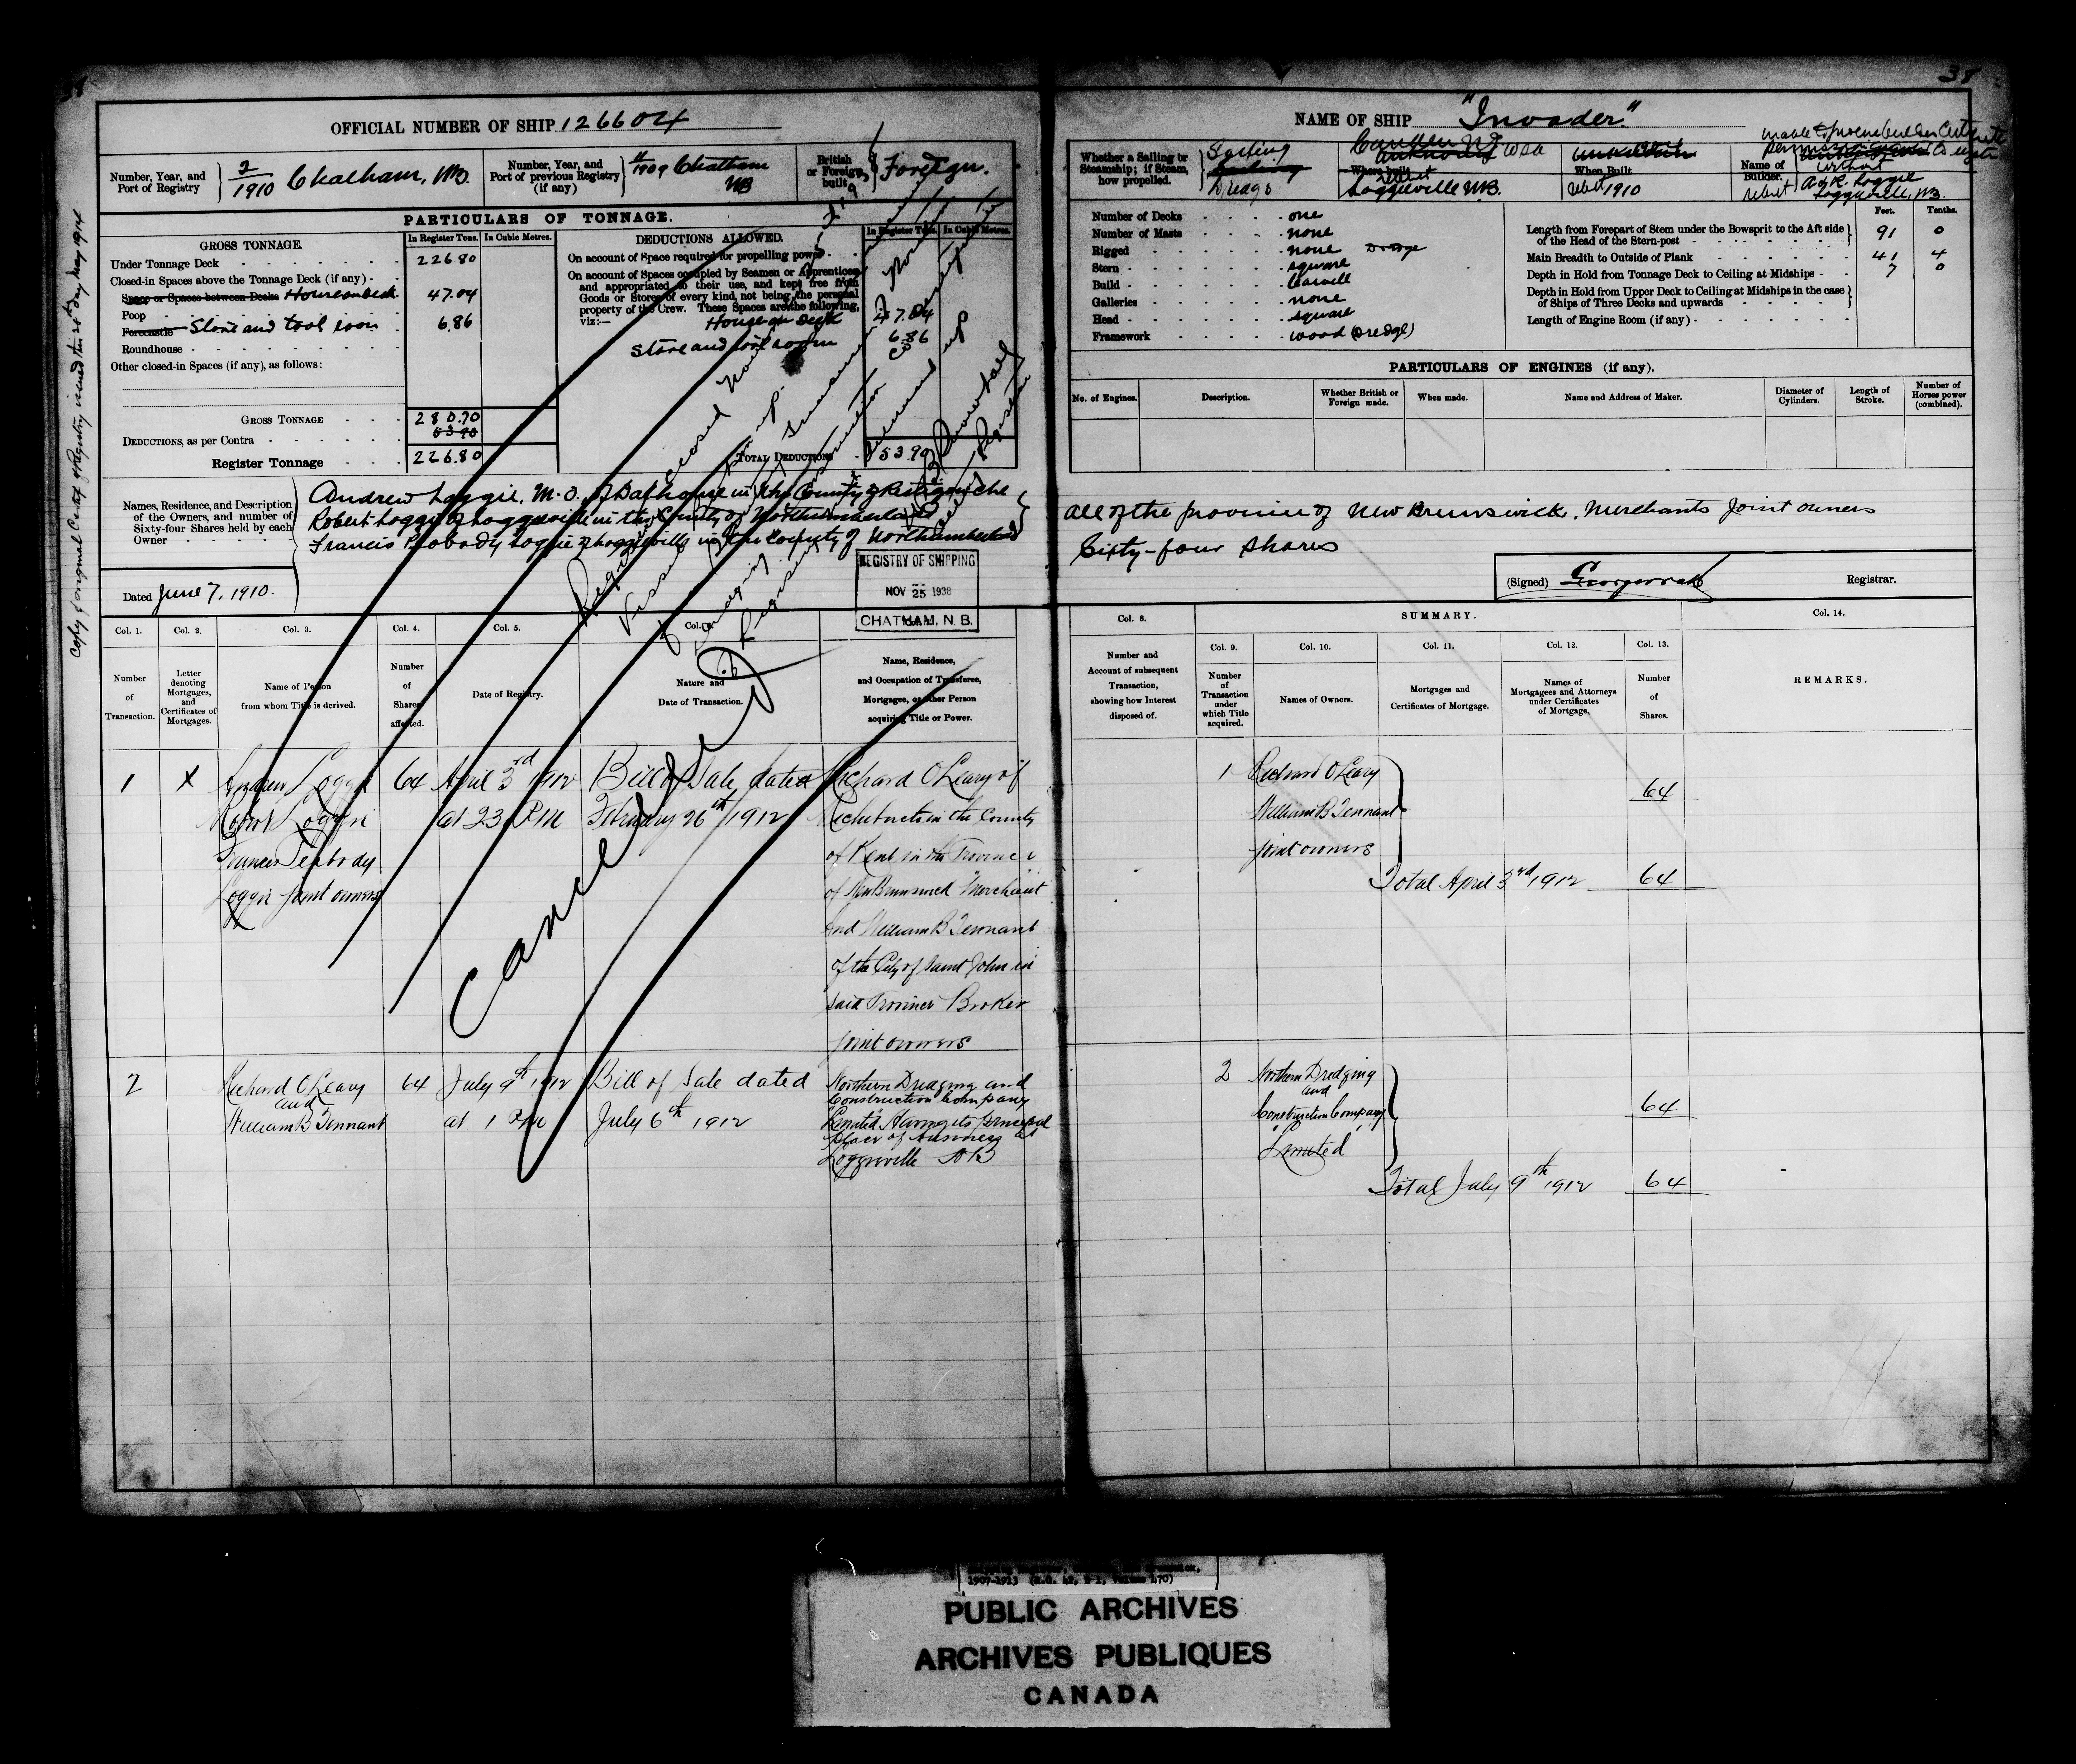 38
38
OFFICIAL NUMBER OF SHIP 126604
NAME OF SHIP "Invader."
Number, Year, and Port of Registry 2/1910 Chatham, NB.
Number, Year, and Port of previous Registry (if any) 1909 Chatham NB
British or Foreign built Foreign.
Whether a Sailing or Steamship; if Steam, how propelled. Sailing Dredge
Where built Camden NJ USA
rebuilt Loggieville NB.
When Built
rebuilt 1910
Name of Builder.
rebuilt A & R. Loggie
Loggieville, NB.
PARTICULARS OF TONNAGE.
GROSS TONNAGE.
In Register Tons. In Cubic Metres.
Under Tonnage Deck 226.80
Closed-in Spaces above the Tonnage Deck (if any)
Space or Spaces between Decks House on deck 47.04
Poop
Forecastle Store and tool room 6.86
Roundhouse
Other closed-in Spaces (if any), as follows:
GROSS TONNAGE 280.70
DEDUCTIONS, as per Contra 53.90
Register Tonnage 226.80
DEDUCTIONS ALLOWED.
In Register Tons. In Cubic Metres.
On account of Space required for propelling power
On account of Spaces occupied by Seamen or Apprentices,
and appropriated to their use, and kept free from
Goods or Stores of every kind, not being the personal
property of the Crew. These Spaces are the following,
viz:—
House on deck 47.04
Store and tool room 6.86
TOTAL DEDUCTIONS 53.90
Number of Decks one
Number of Masts none
Rigged none Dredge
Stern square
Build Carvell
Galleries none
Head square
Framework wood (Dredge)
Feet. Tenths.
Length from Forepart of Stem under the Bowsprit to the Aft side of the Head of the Stern-post 91 0
Main Breadth to Outside of Plank 41 4
Depth in Hold from Tonnage Deck to Ceiling at Midships 7 0
Depth in Hold from Upper Deck to Ceiling at Midships in the case of Ships of Three Decks and upwards
Length of Engine Room (if any)
PARTICULARS OF ENGINES (if any).
No. of Engines. Description. Whether British or Foreign made. When made. Name and Address of Maker. Diameter of Cylinders. Length of Stroke. Number of Horses power (combined).
Names, Residence, and Description of the Owners, and number of Sixty-four Shares held by each Owner
Andrew Loggie, M.O. of Dalhousie in the County of Restigouche
Robert Loggie of Loggieville in the County of Northumberland
Francis Peabody Loggie of Loggieville in the County of Northumberland
all of the province of New Brunswick, Merchants Joint owners
Sixty-four shares
Dated June 7, 1910.
(Signed) Registrar.
REGISTRY OF SHIPPING
NOV 25 1938
CHATHAM, N.B.
Copy of original Cert of Registry issued this day May 1914
Cancelled
Col. 1. Col. 2. Col. 3. Col. 4. Col. 5. Col. 6.
Number of Transaction.
Letter denoting Mortgages, and Certificates of Mortgages.
Name of Person from whom Title is derived.
Number of Shares affected.
Date of Registry.
Nature and Date of Transaction.
Name, Residence, and Occupation of Transferee, Mortgagee, or other Person acquiring Title or Power.
Col. 8.
Number and Account of subsequent Transaction, showing how Interest disposed of.
SUMMARY.
Col. 9. Col. 10. Col. 11. Col. 12. Col. 13. Col. 14.
Number of Transaction under which Title acquired.
Names of Owners.
Mortgages and Certificates of Mortgage.
Names of Mortgagees and Attorneys under Certificates of Mortgage.
Number of Shares.
REMARKS.
1 X Andrew Loggie 64 April 3rd 1912 Bill of Sale dated Richard O'Leary of
Robert Loggie at 23 PM February 26th 1912 Richibucto in the County
Francis Peabody of Kent in the Province
Loggie joint owners of New Brunswick "Merchant"
and William B Tennant
of the City of Saint John in
said Province Broker
joint owners
1 Richard O'Leary
William B Tennant 64
joint owners
Total April 3rd 1912 64
2 Richard O'Leary 64 July 9th 1912 Bill of Sale dated Northern Dredging and
and Construction Company
William B Tennant at 1 PM July 6th 1912 "Limited" Having its principal
place of business at
Loggieville NB
2 Northern Dredging
and
Construction Company 64
"Limited"
Total July 9th 1912 64
1907-1913
PUBLIC ARCHIVES
ARCHIVES PUBLIQUES
CANADA